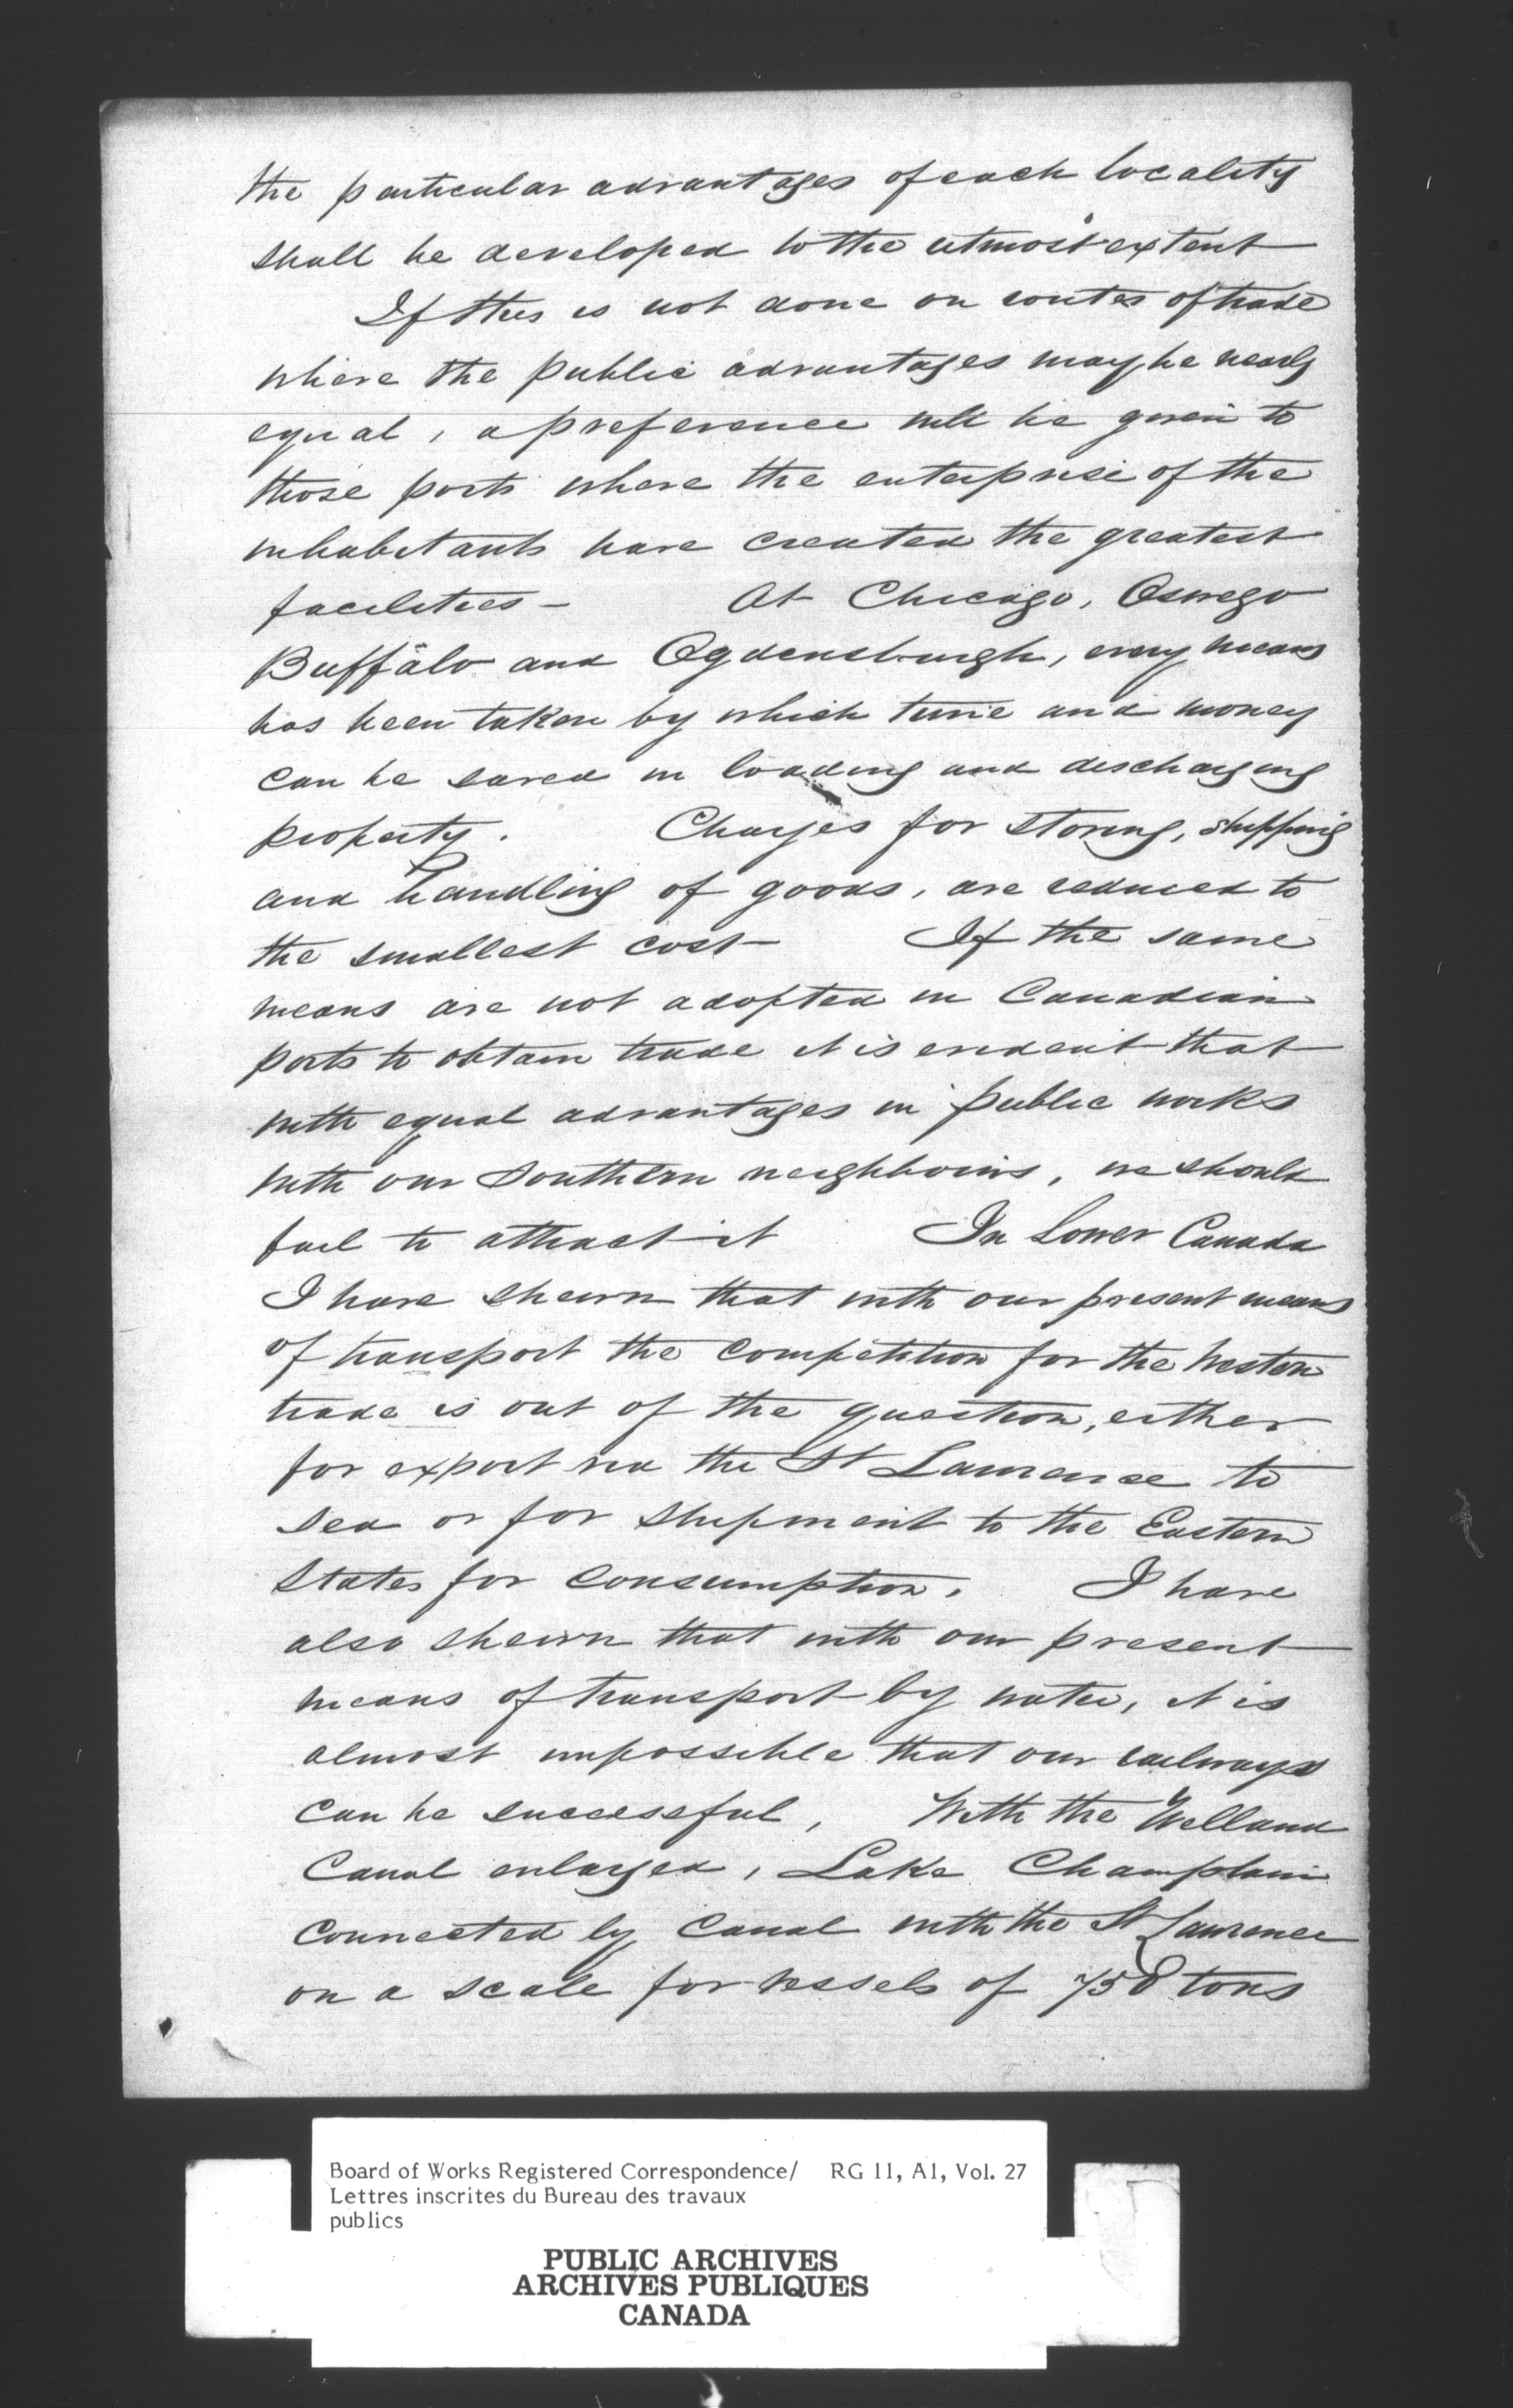 the particular advantages of each locality
shall be developed to the utmost extent
If this is not done on routes of trade
where the public advantages may be nearly
equal, a preference will be given to
those ports where the enterprise of the
inhabitants have created the greatest
facilities - At Chicago, Oswego
Buffalo and Ogdensburgh, every means
has been taken by which time and money
can be saved in loading and discharging
property. Charges for storing, shipping
and handling of goods, are reduced to
the smallest cost - If the same
means are not adopted in Canadian
ports to obtain trade it is evident that
with equal advantages in public works
with our Southern neighbours, we should
fail to attract it In Lower Canada
I have shewn that with our present means
of transport the competition for the Western
trade is out of the question, either
for export via the St Lawrence to
sea or for shipment to the Eastern
States for consumption. I have
also shewn that with our present
means of transport by water, it is
almost impossible that our railways
can be successful, With the Welland
Canal enlarged, Lake Champlain
connected by Canal with the St Lawrence
on a scale for vessels of 750 tons
Board of Works Registered Correspondence/ RG 11, A1, Vol. 27
Lettres inscrites du Bureau des travaux
publics
PUBLIC ARCHIVES
ARCHIVES PUBLIQUES
CANADA